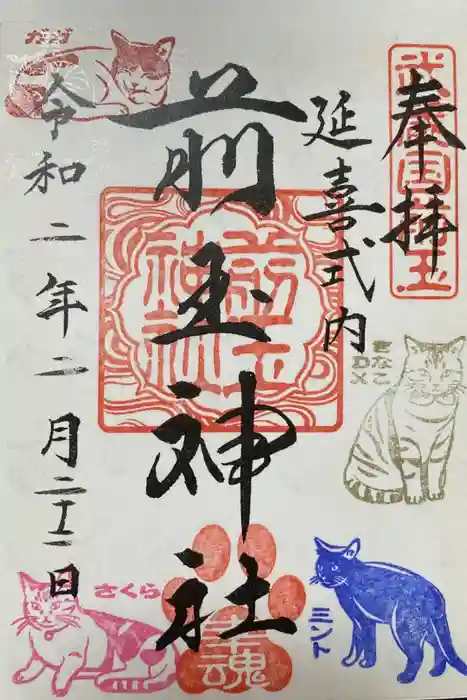 奉拝
武蔵国埼玉
延喜式内
前玉神社
前玉神社
令和二年二月二十二日
きなこDX
ミント
さくら
幸魂